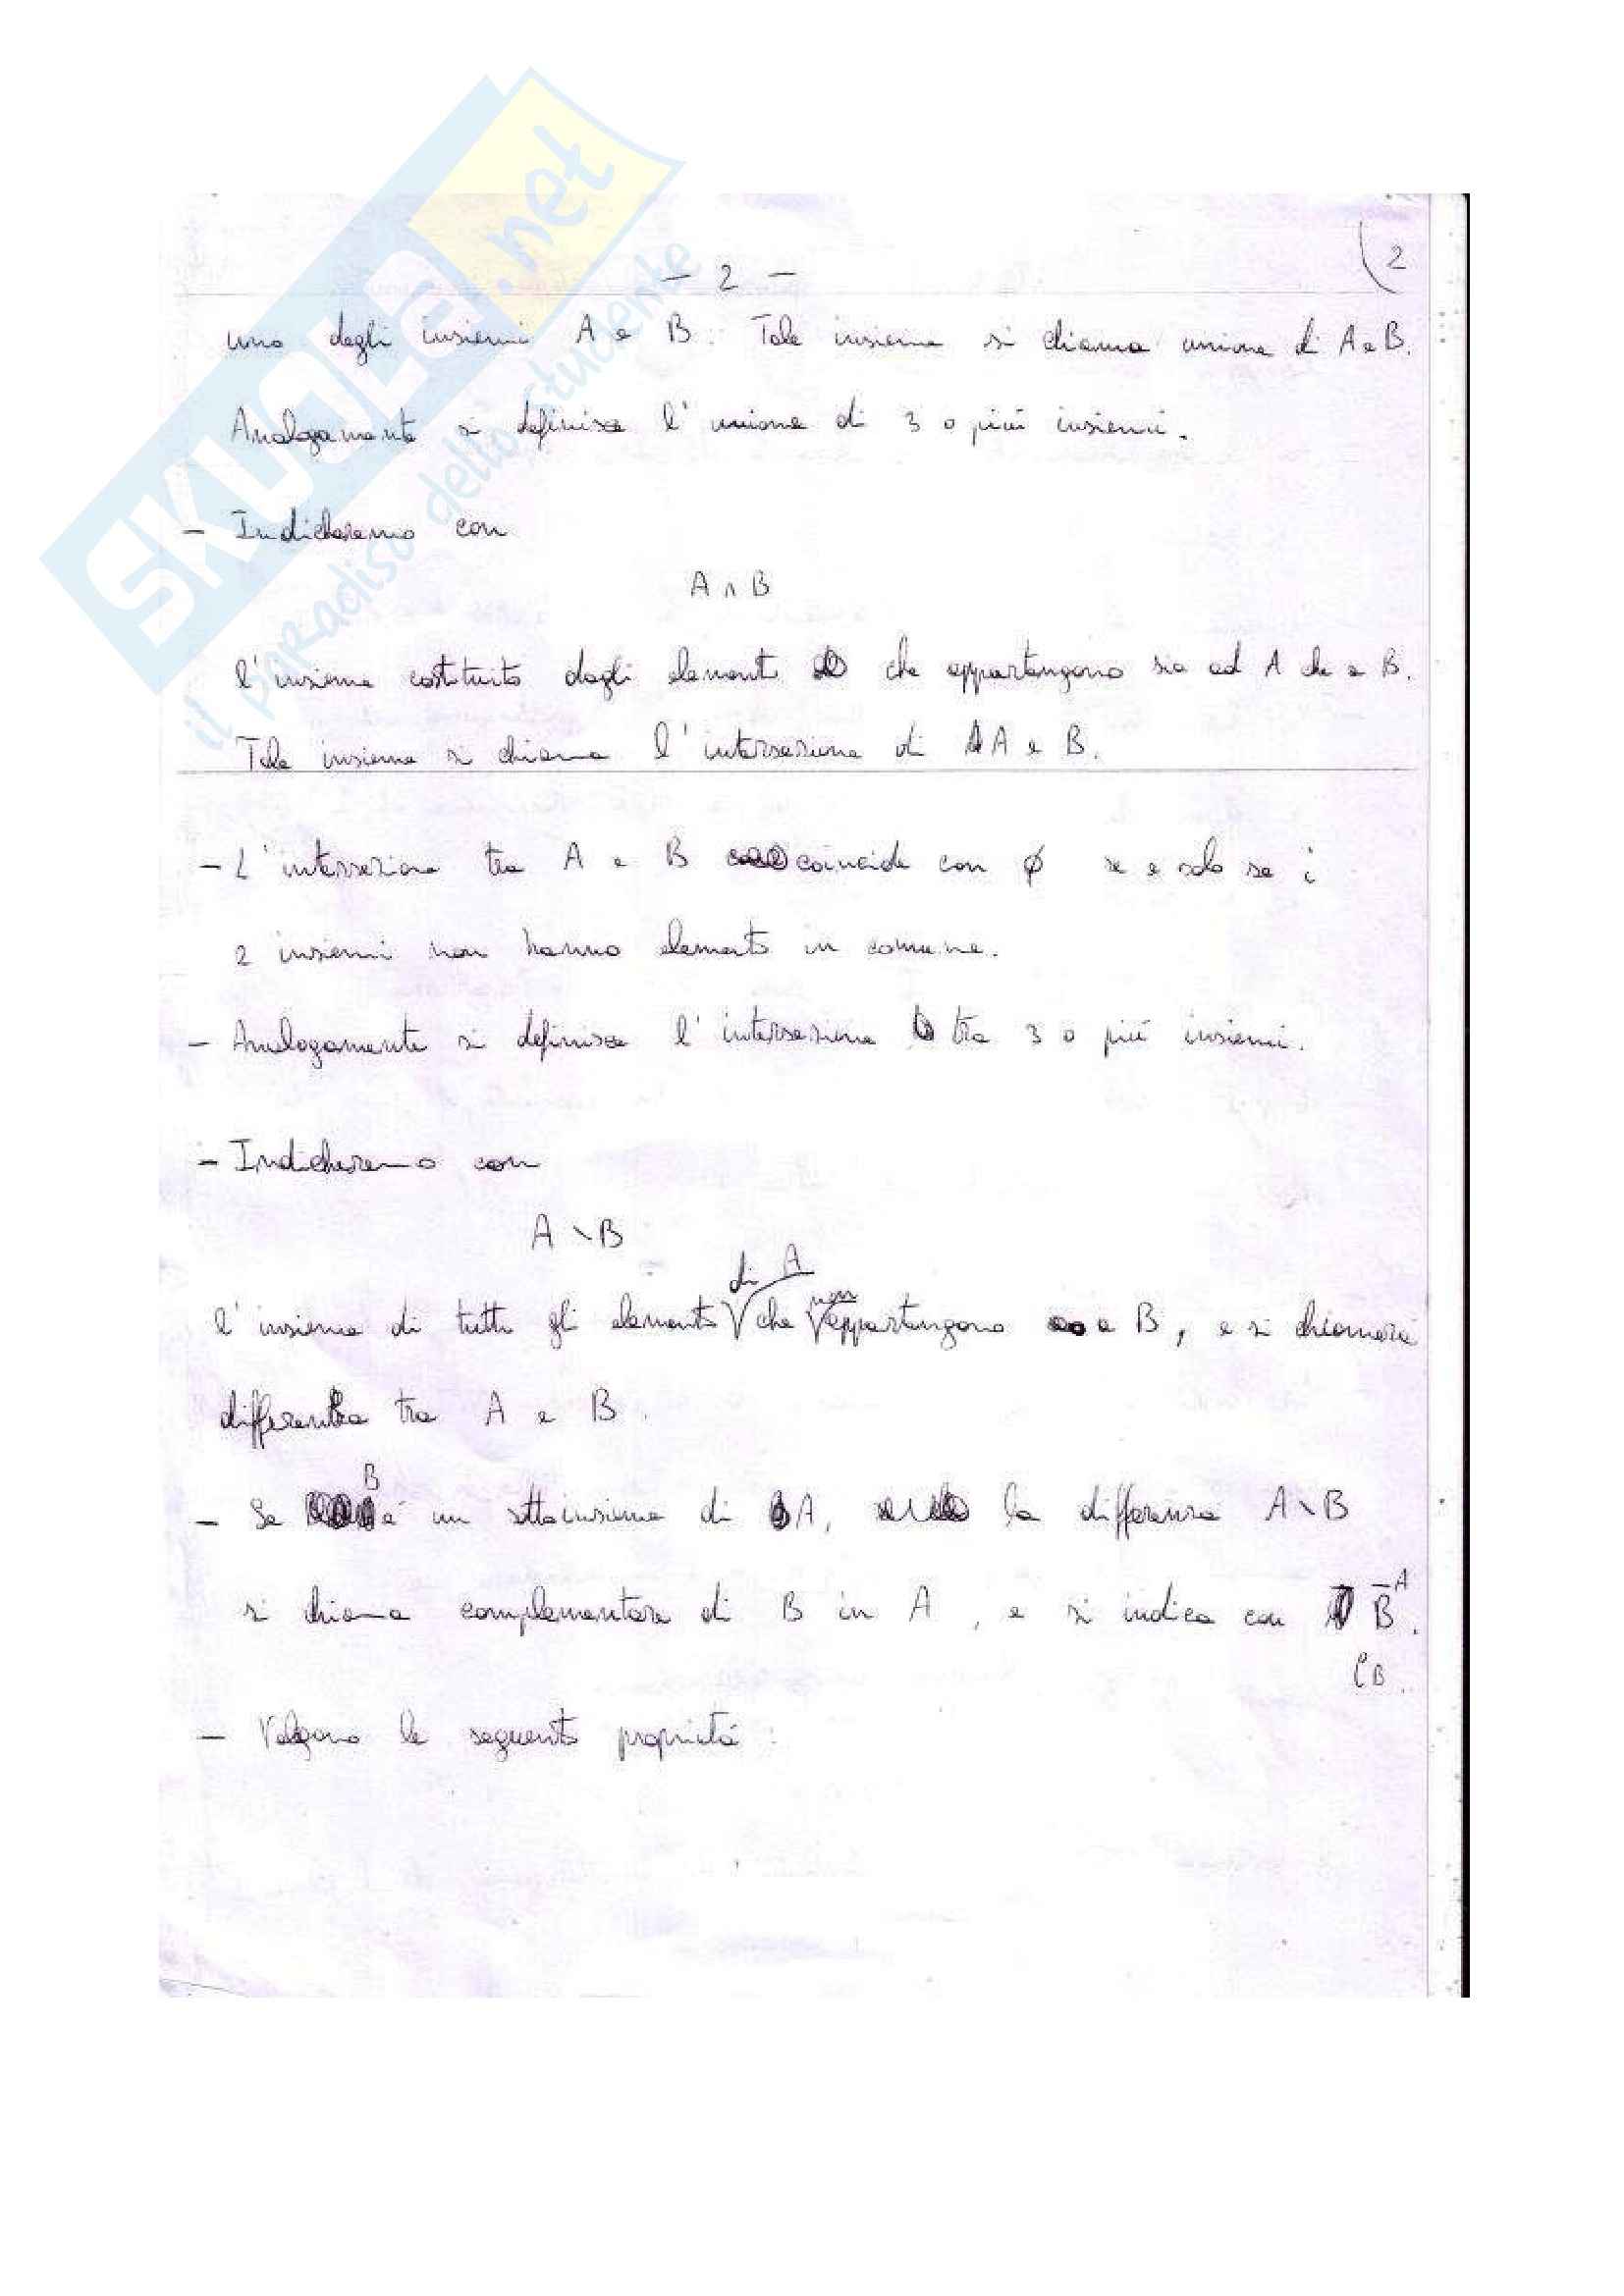 SKUOLA.net
il paradiso dello studente
2
- 2 -
uno degli insiemi A e B. Tale insieme si chiama unione di A e B.
Analogamente si definisce l'unione di 3 o più insiemi.
- Indicheremo con
A ∩ B
l'insieme costituito dagli elementi che appartengono sia ad A che a B.
Tale insieme si chiama l'intersezione di A e B.
- L'intersezione tra A e B coincide con ∅ se e solo se i
2 insiemi non hanno elementi in comune.
- Analogamente si definisce l'intersezione tra 3 o più insiemi.
- Indicheremo con
A \ B
di A
non
l'insieme di tutti gli elementi che appartengono a B, e si chiamerà
differenza tra A e B.
B
- Se è un sottoinsieme di A, la differenza A \ B
si chiama complementare di B in A, e si indica con B̅ᴬ.
∁B.
- Valgono le seguenti proprietà: